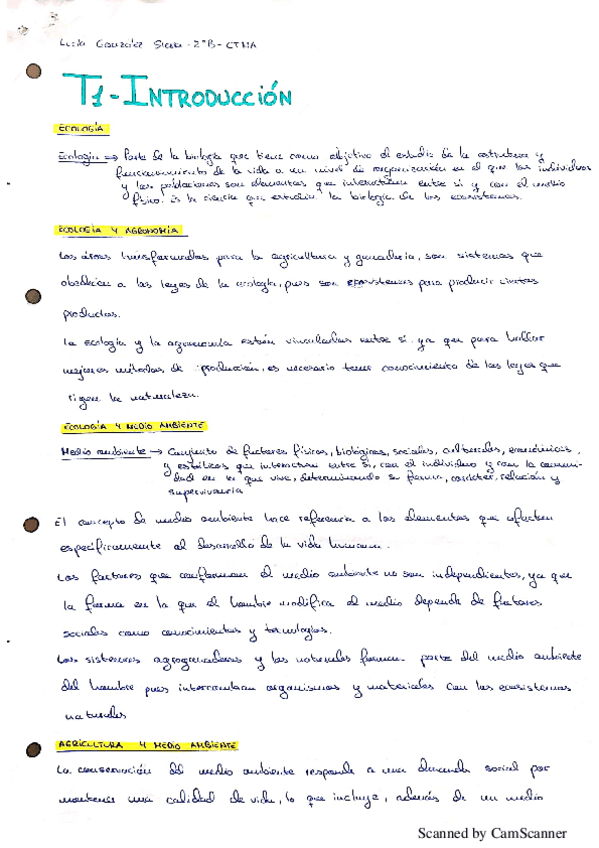 Lucía González Sierra - 2ºB - CTMA
T1 - INTRODUCCIÓN
ECOLOGÍA
Ecología => Parte de la biología que tiene como objetivo el estudio de la estructura y
funcionamiento de la vida a un nivel de organización en el que los individuos
y las poblaciones son elementos que interactúan entre sí y con el medio
físico. Es la ciencia que estudia la biología de los ecosistemas.
ECOLOGÍA Y AGRONOMÍA
Las áreas transformadas para la agricultura y ganadería, son sistemas que
obedecen a las leyes de la ecología, pues son ecosistemas para producir ciertos
productos.
La ecología y la agronomía están vinculadas entre sí ya que para hallar
mejores métodos de producción, es necesario tener conocimiento de las leyes que
rigen la naturaleza.
ECOLOGÍA Y MEDIO AMBIENTE
Medio ambiente → Conjunto de factores físicos, biológicos, sociales, culturales, económicos,
y estéticos que interactúan entre sí, con el individuo y con la comuni-
dad en la que vive, determinando su forma, carácter, relación y
supervivencia
El concepto de medio ambiente hace referencia a los elementos que afectan
específicamente al desarrollo de la vida humana.
Los factores que conforman el medio ambiente no son independientes, ya que
la forma en la que el hombre modifica el medio depende de factores
sociales como conocimientos y tecnologías.
Los sistemas agroganaderos y los naturales forman parte del medio ambiente
del hombre pues intercambian organismos y materiales con los ecosistemas
naturales
AGRICULTURA Y MEDIO AMBIENTE
La conservación del medio ambiente responde a una demanda social por
mantener una calidad de vida, lo que incluye, además de un medio
Scanned by CamScanner